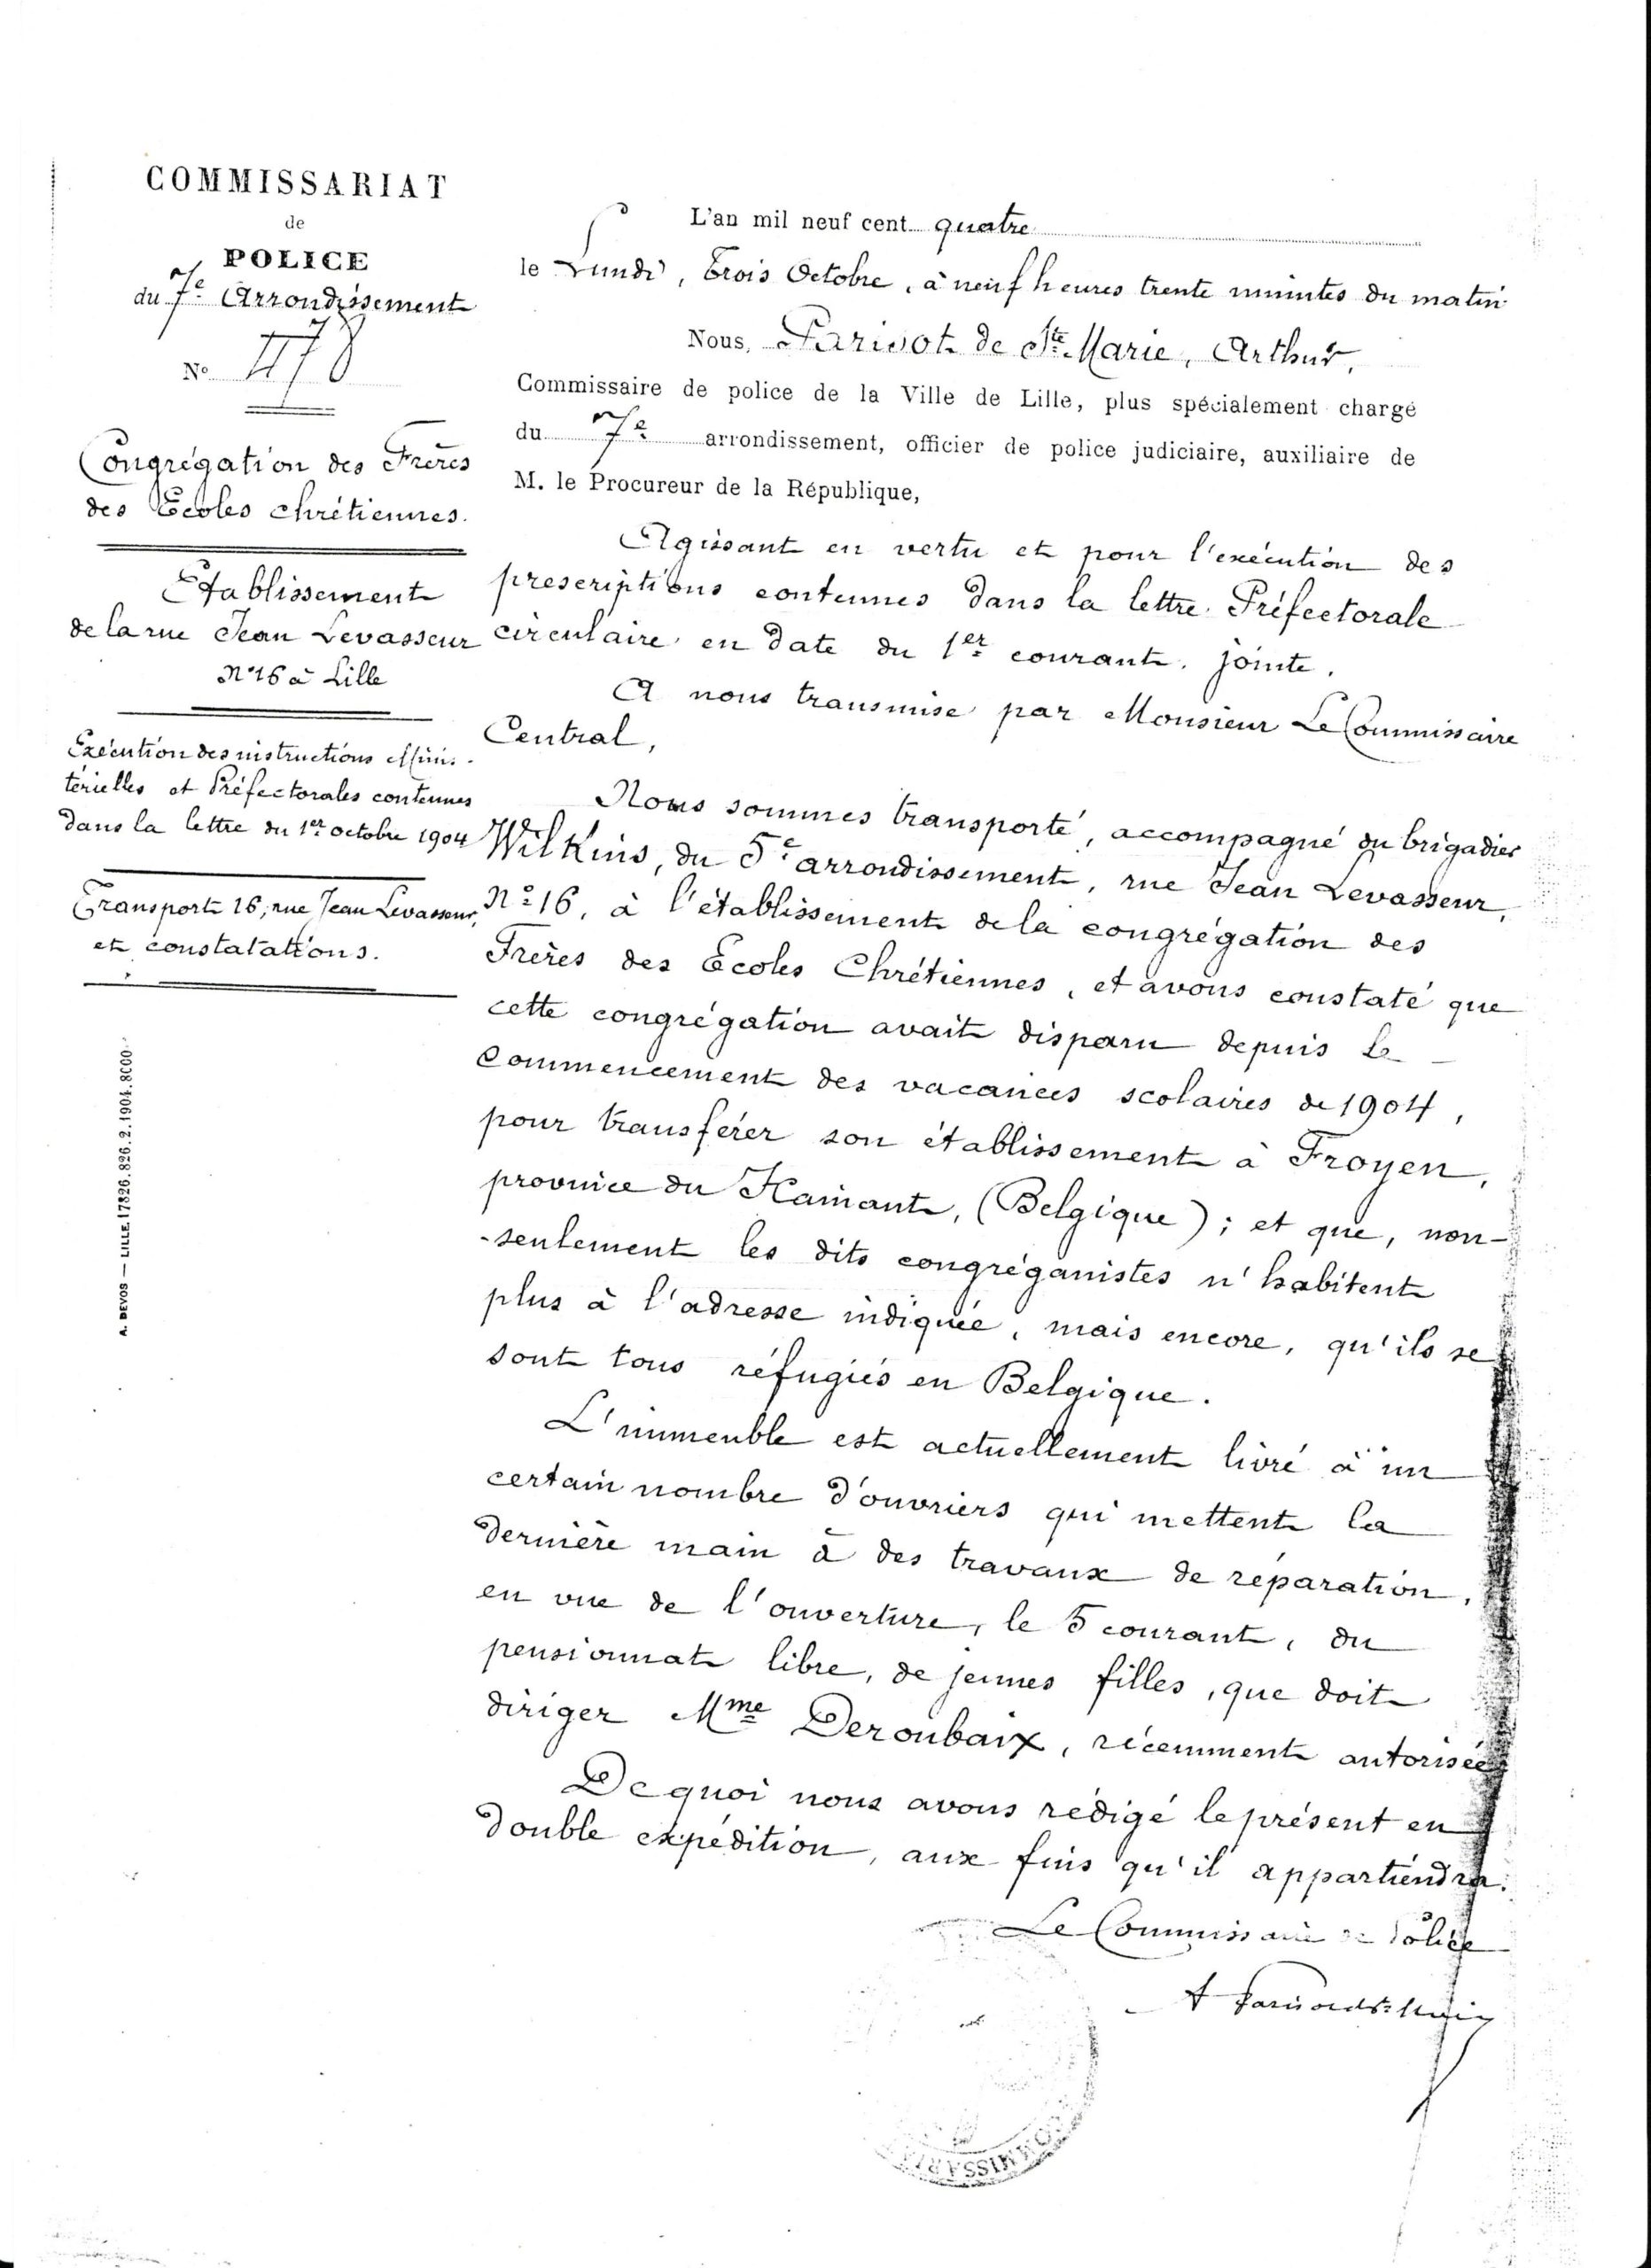 COMMISSARIAT
de
POLICE
du 7e Arrondissement
No 478
Congrégation des Frères
des Ecoles chrétiennes.
Etablissement
de la rue Jean Levasseur
No 16 à Lille
Exécution des instructions Minis-
térielles et Préfectorales contenues
dans la lettre du 1er octobre 1904
Transport 16, rue Jean Levasseur,
et constatations.
A. DEVOS — LILLE. 17826.826.2.1904.8000
L'an mil neuf cent quatre
le Lundi, trois Octobre, à neuf heures trente minutes du matin
Nous, Parisot de Ste Marie, Arthur,
Commissaire de police de la Ville de Lille, plus spécialement chargé
du 7e arrondissement, officier de police judiciaire, auxiliaire de
M. le Procureur de la République,
Agissant en vertu et pour l'exécution des
prescriptions contenues dans la lettre Préfectorale
circulaire en date du 1er courant, jointe,
A nous transmise par Monsieur Le Commissaire
Central,
Nous sommes transporté, accompagné du brigadier
Wilkins, du 5e arrondissement, rue Jean Levasseur,
No 16, à l'établissement de la congrégation des
Frères des Ecoles Chrétiennes, et avons constaté que
cette congrégation avait disparu depuis le
commencement des vacances scolaires de 1904,
pour transférer son établissement à Froyen,
province du Hainant, (Belgique); et que, non-
-seulement les dits congréganistes n'habitent
plus à l'adresse indiquée, mais encore, qu'ils se
sont tous réfugiés en Belgique.
L'immeuble est actuellement livré à un
certain nombre d'ouvriers qui mettent la
dernière main à des travaux de réparation,
en vue de l'ouverture, le 5 courant, du
pensionnat libre, de jeunes filles, que doit
diriger Mme Deroubaix, récemment autorisée
De quoi nous avons rédigé le présent en
double expédition, aux fins qu'il appartiendra.
Le Commissaire de Police